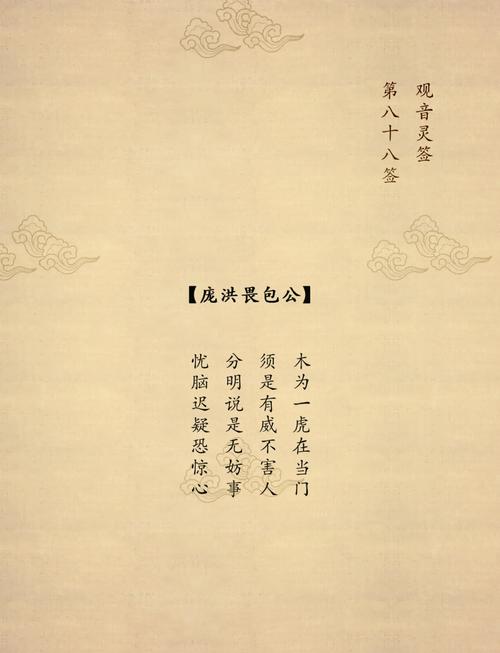 观音灵签
第八十八签
【庞洪畏包公】
木为一虎在当门
须是有威不害人
分明说是无妨事
忧脑迟疑恐惊心